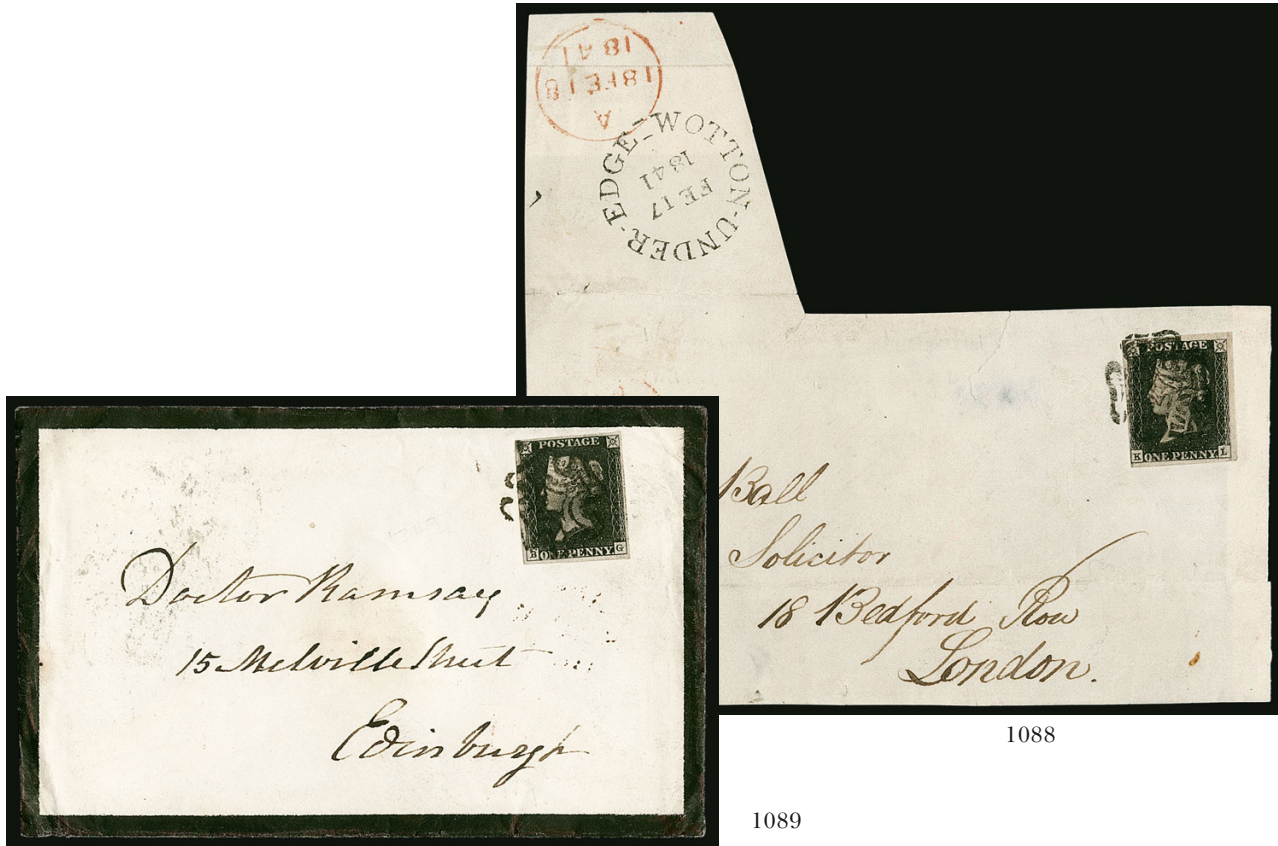 A
18 FE 18
1841
WOTTON-UNDER-EDGE
FE 17
1841
POSTAGE
K ONE PENNY L
Ball
Solicitor
18 Bedford Row
London.
1088
POSTAGE
B ONE PENNY G
Doctor Ramsay
15 Melville Street
Edinburgh
1089